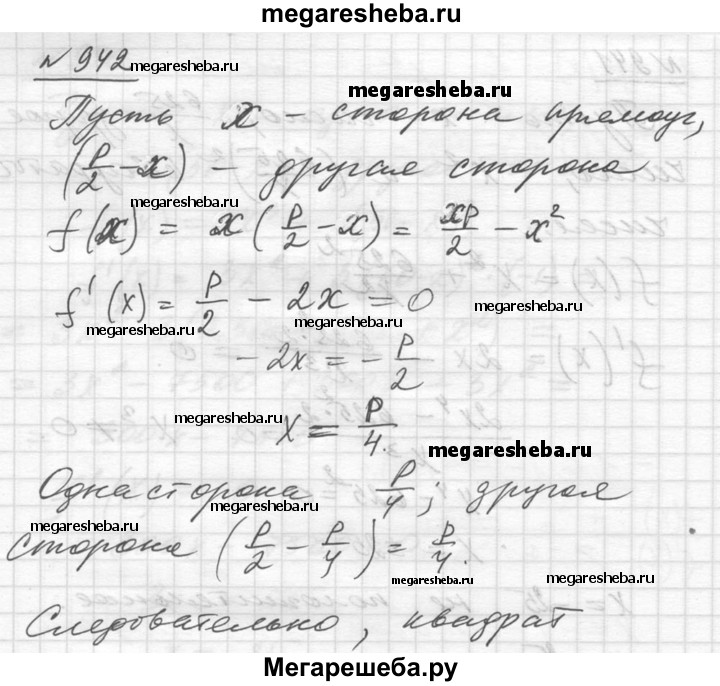 megaresheba.ru
№942
megaresheba.ru
megaresheba.ru
Пусть x – сторона прямоуг,
(p/2 – x) – другая сторона
megaresheba.ru
f(x) = x(p/2 – x) = xp/2 – x²
f'(x) = p/2 – 2x = 0
megaresheba.ru
megaresheba.ru
megaresheba.ru
– 2x = – p/2
megaresheba.ru
x = p/4.
megaresheba.ru
Одна сторона p/4; другая
megaresheba.ru
сторона (p/2 – p/4) = p/4.
megaresheba.ru
megaresheba.ru
Следовательно, квадрат
Мегарешеба.ру